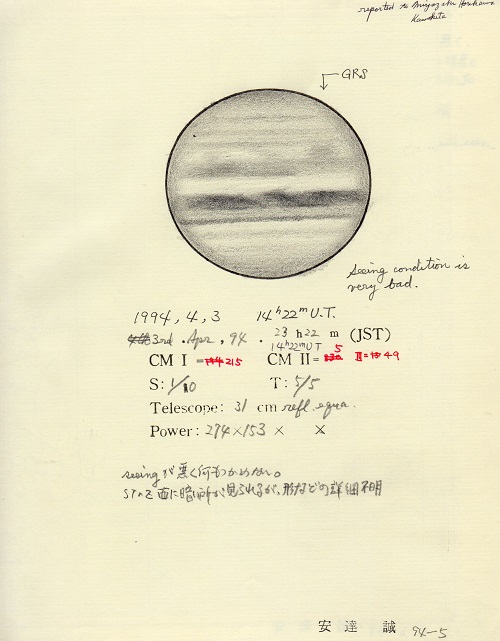 reported to Miyazaki Horikawa
Kuwakita
GRS
seeing condition is
very bad.
1994, 4, 3 14h22m U.T.
3rd . Apr , 94 . 23 h 22 m (JST)
14h22m UT
CM I = 215 CM II = 5 III = 49
S: 1/10 T: 5/5
Telescope: 31 cm refl. equa.
Power: 274 × 153 × ×
seeingが悪く何もわからない。
STrZ 面に暗い所が見られるが、形などの詳細不明
安達 誠 94-5